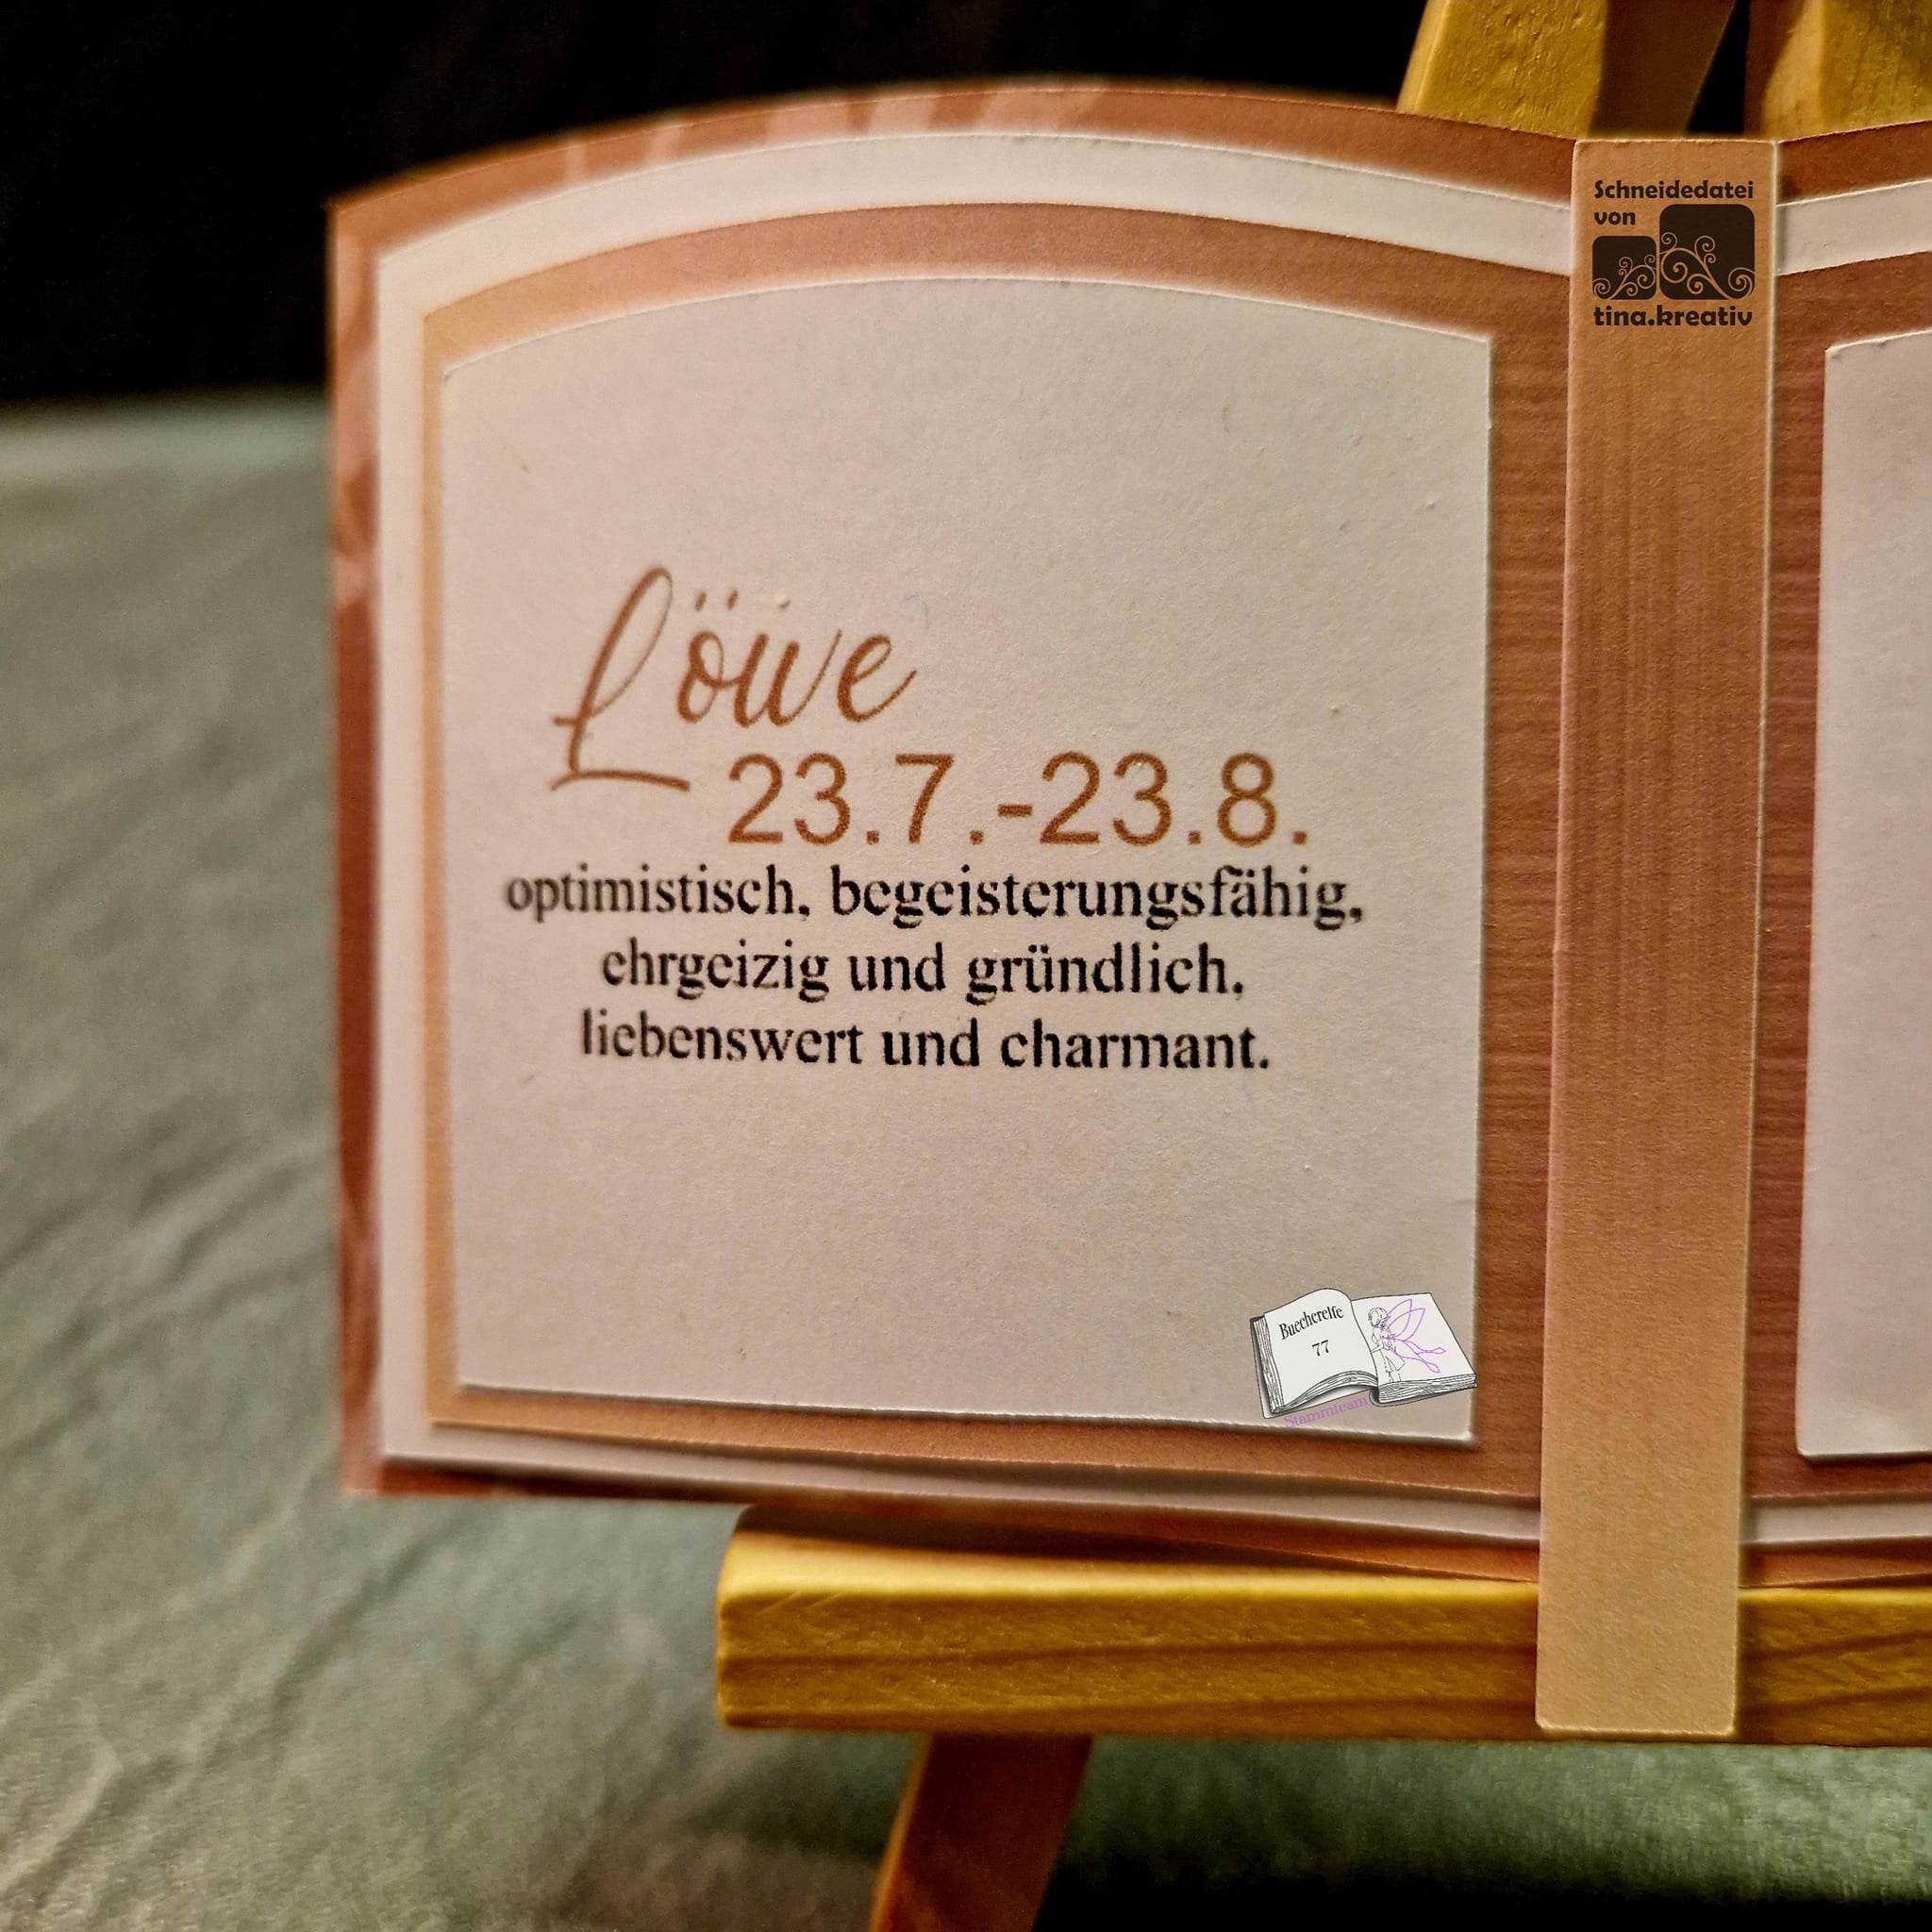 Schneidedatei
von
tina.kreativ
Löwe
23.7.-23.8.
optimistisch, begeisterungsfähig,
ehrgeizig und gründlich,
liebenswert und charmant.
Buecherelfe
77
Stammteam